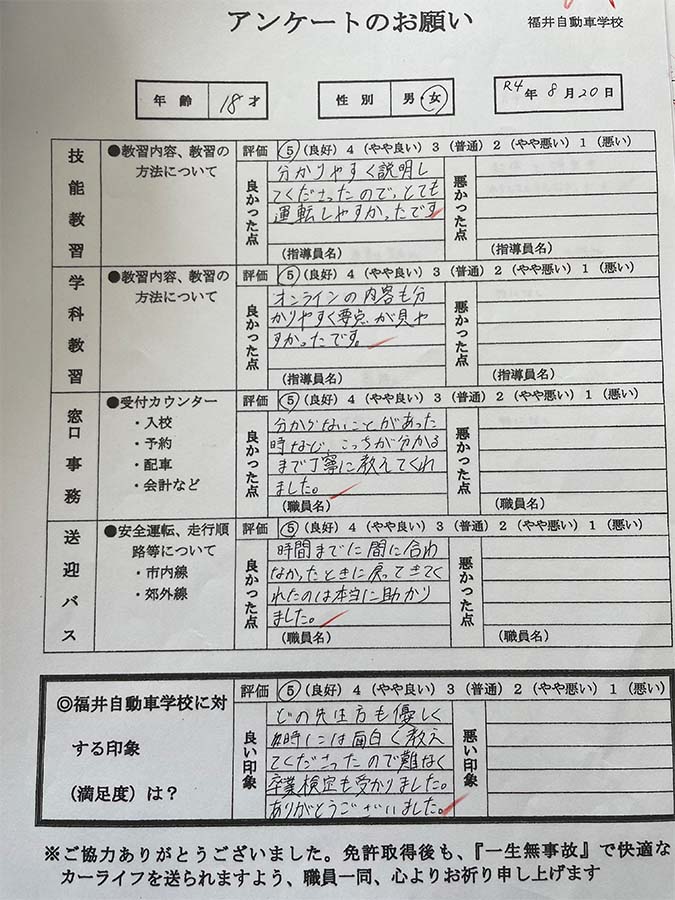 アンケートのお願い
福井自動車学校
年齢 18才
性別 男・女
R4年8月20日
技能教習
●教習内容、教習の
方法について
評価 5(良好) 4(やや良い) 3(普通) 2(やや悪い) 1(悪い)
良かった点
分かりやすく説明し
てくださったので、とても
運転しやすかったです
(指導員名)
悪かった点
(指導員名)
学科教習
●教習内容、教習の
方法について
評価 5(良好) 4(やや良い) 3(普通) 2(やや悪い) 1(悪い)
良かった点
オンラインの内容も分
かりやすく要点が見や
すかったです。
(指導員名)
悪かった点
(指導員名)
窓口事務
●受付カウンター
・入校
・予約
・配車
・会計など
評価 5(良好) 4(やや良い) 3(普通) 2(やや悪い) 1(悪い)
良かった点
分からないことがあった
時など、こっちが分かる
まで丁寧に教えてくれ
ました。
(職員名)
悪かった点
(職員名)
送迎バス
●安全運転、走行順
路等について
・市内線
・郊外線
評価 5(良好) 4(やや良い) 3(普通) 2(やや悪い) 1(悪い)
良かった点
時間までに間に合わ
なかったときに戻ってきてく
れたのは本当に助かり
ました。
(職員名)
悪かった点
(職員名)
◎福井自動車学校に対
する印象
(満足度)は?
評価 5(良好) 4(やや良い) 3(普通) 2(やや悪い) 1(悪い)
良い印象
どの先生方も優しく
時には面白く教え
てくださったので難なく
卒業検定も受かりました。
ありがとうございました。
悪い印象
※ご協力ありがとうございました。免許取得後も、『一生無事故』で快適な
カーライフを送られますよう、職員一同、心よりお祈り申し上げます